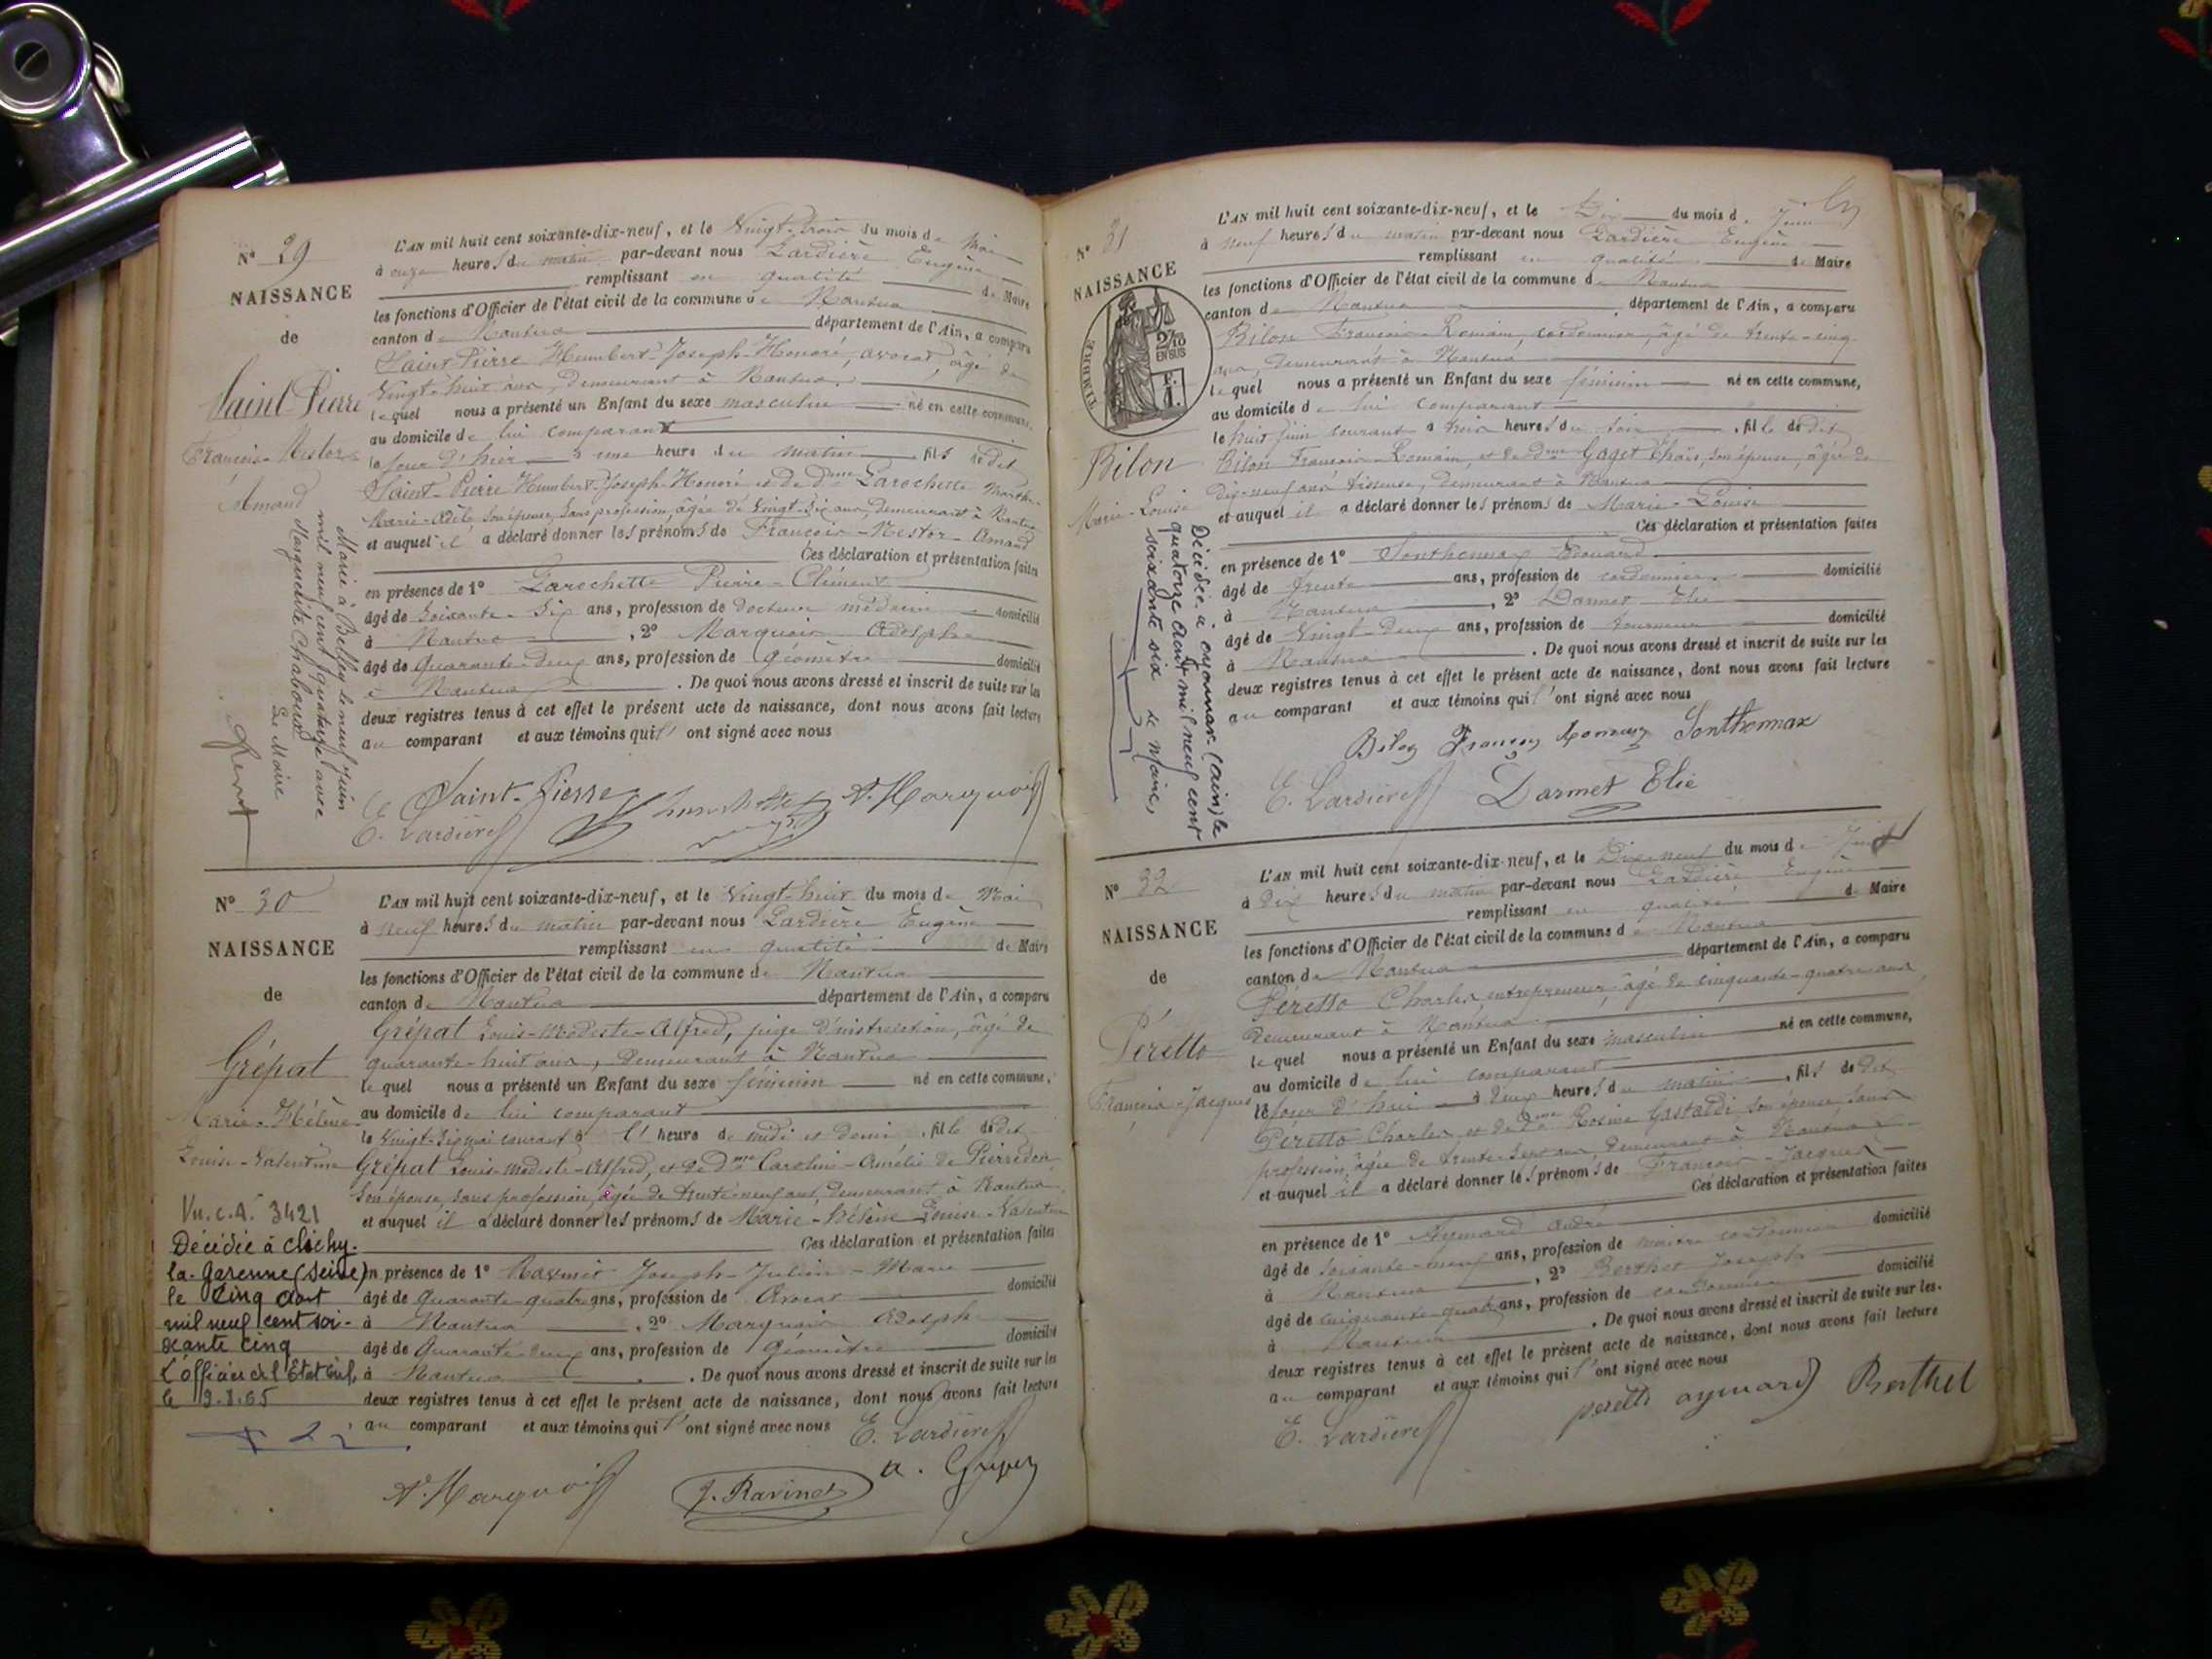 N° 29
NAISSANCE
de
Saint-Pierre
François-Nestor-
Amand
Marié à Belley le neuf Juin
mil neuf cent quatorze avec
Marguerite Chaboud
Le Maire
L'AN mil huit cent soixante-dix-neuf, et le Vingt-trois du mois de Mai
à onze heures du matin par-devant nous Lardière Eugène
remplissant en qualité de Maire
les fonctions d'Officier de l'état civil de la commune de Nantua
canton de Nantua département de l'Ain, a comparu
Saint-Pierre Humbert-Joseph-Honoré, avocat, âgé de
Vingt-huit ans, demeurant à Nantua.
lequel nous a présenté un Enfant du sexe masculin né en cette commune,
au domicile de lui comparant
le jour d'hier à une heure du matin, fils dedit
Saint-Pierre Humbert-Joseph-Honoré et de dme Larochette Marthe-
Marie-Adèle son épouse, sans profession, âgée de Vingt-six ans, demeurant à Nantua
et auquel il a déclaré donner les prénoms de François-Nestor-Amand
Ces déclaration et présentation faites
en présence de 1° Larochette Pierre-Clément
âgé de Soixante-six ans, profession de Docteur médecin domicilié
à Nantua, 2° Marquois Adolphe
âgé de Quarante-deux ans, profession de Géomètre domicilié
à Nantua. De quoi nous avons dressé et inscrit de suite sur les
deux registres tenus à cet effet le présent acte de naissance, dont nous avons fait lecture
au comparant et aux témoins qui l'ont signé avec nous
Saint-Pierre A. Marquois
E. Lardière
N° 30
NAISSANCE
de
Grépat
Marie-Hélène
Louise-Valentine
Vu. c. A. 3421
Décédée à Clichy-
la-Garenne (Seine)
le Cinq Août
mil neuf cent soi-
xante cinq
L'officier de l'Etat Civil,
le 9.8.65
L'AN mil huit cent soixante-dix-neuf, et le Vingt-huit du mois de Mai
à neuf heures du matin par-devant nous Lardière Eugène
remplissant en qualité de Maire
les fonctions d'Officier de l'état civil de la commune de Nantua
canton de Nantua département de l'Ain, a comparu
Grépat Louis-Modeste-Alfred, juge d'instruction, âgé de
quarante-huit ans, demeurant à Nantua
lequel nous a présenté un Enfant du sexe féminin né en cette commune,
au domicile de lui comparant
le Vingt-six mai courant à l' heure de midi et demi, fille dedit
Grépat Louis-Modeste-Alfred, et de Dme Caroline-Amélie de
son épouse, sans profession, âgée de trente-neuf ans, demeurant à Nantua
et auquel il a déclaré donner les prénoms de Marie-Hélène Louise-Valentine
Ces déclaration et présentation faites
en présence de 1° Ravinet Joseph-Julien-Marie
âgé de Quarante quatre ans, profession de Avocat domicilié
à Nantua, 2° Marquois Adolphe
âgé de Quarante-deux ans, profession de Géomètre domicilié
à Nantua. De quoi nous avons dressé et inscrit de suite sur les
deux registres tenus à cet effet le présent acte de naissance, dont nous avons fait lecture
au comparant et aux témoins qui l'ont signé avec nous E. Lardière
A. Marquois J. Ravinet
N° 31
NAISSANCE
TIMBRE
2/10
EN SUS
Bilon
Marie-Louise
Décédée à Oyonnax (Ain) le
quatorze août mil neuf cent
soixante six Le Maire,
L'AN mil huit cent soixante-dix-neuf, et le Dix du mois de Juin
à neuf heures du matin par-devant nous Lardière Eugène
remplissant en qualité de Maire
les fonctions d'Officier de l'état civil de la commune de Nantua
canton de Nantua département de l'Ain, a comparu
Bilon François-Romain, cordonnier, âgé de trente-cinq
ans, demeurant à Nantua
lequel nous a présenté un Enfant du sexe féminin né en cette commune,
au domicile de lui comparant
le huit juin courant à trois heures du soir, fille dedit
Bilon François-Romain, et de Dme Gaget Thaïs, son épouse, âgée de
dix-neuf ans tisseuse, demeurant à Nantua
et auquel il a déclaré donner les prénoms de Marie-Louise
Ces déclaration et présentation faites
en présence de 1° Sonthonnax Edouard
âgé de Trente ans, profession de cordonnier domicilié
à Nantua, 2° Darmet Elie
âgé de Vingt-deux ans, profession de domicilié
à Nantua. De quoi nous avons dressé et inscrit de suite sur les
deux registres tenus à cet effet le présent acte de naissance, dont nous avons fait lecture
au comparant et aux témoins qui l'ont signé avec nous
Bilon Sonthonnax
E. Lardière Darmet Elie
N° 32
NAISSANCE
de
Péretto
François-Jacques
L'AN mil huit cent soixante-dix-neuf, et le Dix-neuf du mois de Juin
à Dix heures du matin par-devant nous Lardière Eugène
remplissant en qualité de Maire
les fonctions d'Officier de l'état civil de la commune de Nantua
canton de Nantua département de l'Ain, a comparu
Péretto Charles, entrepreneur, âgé de cinquante-quatre ans
demeurant à Nantua
lequel nous a présenté un Enfant du sexe masculin né en cette commune,
au domicile de lui comparant
le jour d'hui à deux heures du matin, fils dedit
Péretto Charles, et de Dme Rosine Gastaldi son épouse, sans
profession, âgée de ans, demeurant à Nantua
et auquel il a déclaré donner les prénoms de François-Jacques
Ces déclaration et présentation faites
en présence de 1° Aymard André
âgé de Soixante-neuf ans, profession de domicilié
à Nantua, 2° Berthet Joseph
âgé de cinquante-quatre ans, profession de cordonnier domicilié
à Nantua. De quoi nous avons dressé et inscrit de suite sur les
deux registres tenus à cet effet le présent acte de naissance, dont nous avons fait lecture
au comparant et aux témoins qui l'ont signé avec nous
peretti aymard Berthet
E. Lardière